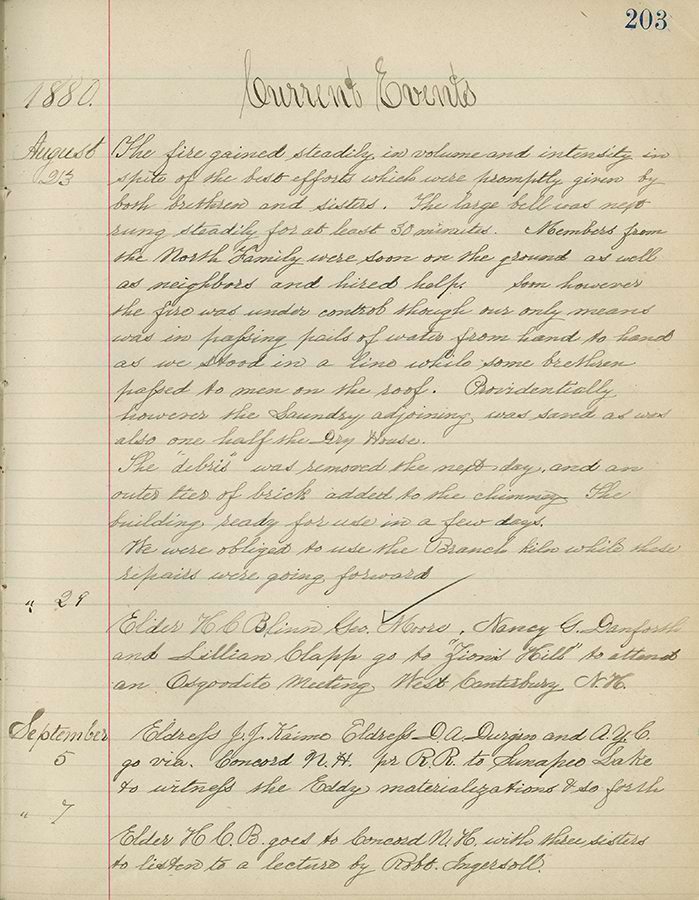 203
1880. Current Events
August The fire gained steadily in volume and intensity in
23 spite of the best efforts which were promptly given by
both brethren and sisters. The large bell was next
rung steadily for at least 30 minutes. Members from
the North Family were soon on the ground as well
as neighbors and hired help. Soon however
the fire was under control though our only means
was in passing pails of water from hand to hand
as we stood in a line while some brethren
passed to men on the roof. Providentially
however the Laundry adjoining was saved as was
also one half the Dry House.
The "debris" was removed the next day, and an
outer tier of brick added to the chimney The
building ready for use in a few days.
We were obliged to use the Branch kiln while these
repairs were going forward
" 29
Elder H C Blinn Geo. Moore, Nancy G. Danforth
and Lillian Clapp go to "Zion's Hill" to attend
an Osgoodite Meeting West Canterbury N.H.
September Eldress J. J. Kaime Eldress D. A. Durgin and A. Y. C.
5 go via. Concord N.H. pr R.R. to Sunapee Lake
to witness the Eddy materializations & so forth
" 7
Elder H C. B. goes to Concord N.H. with three sisters
to listen to a lecture by Robt. Ingersoll.